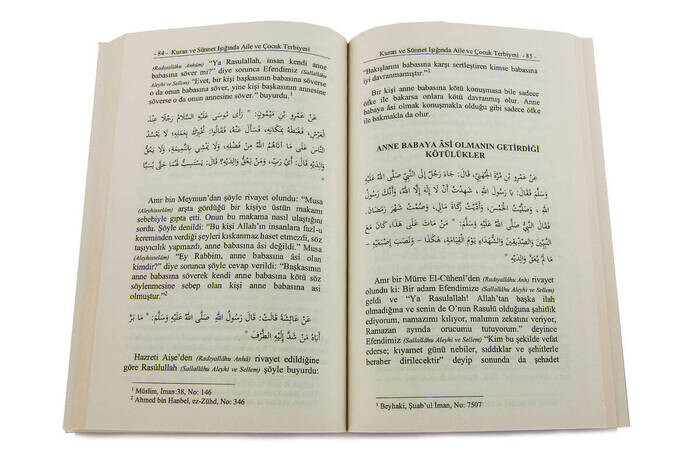 - 84 - Kuran ve Sünnet Işığında Aile ve Çocuk Terbiyesi
(Radıyallâhu Anhüm) "Ya Rasulallah, insan kendi anne
babasına söver mi?" diye sorunca Efendimiz (Sallallâhu
Aleyhi ve Sellem) "Evet, bir kişi başkasının babasına söverse
o da onun babasına söver, yine kişi başkasının annesine
söverse o da onun annesine söver." buyurdu.1
عَنْ عَمْرِو بْنِ مَيْمُونٍ: قَالَ رَأَى مُوسَى عَلَيْهِ السَّلَامُ رَجُلًا عِنْدَ
الْعَرْشِ، فَغَبَطَهُ بِمَكَانِهِ، فَسَأَلَ عَنْهُ، فَقَالُوا: نُخْبِرُكَ بِعَمَلِهِ: لَا يَحْسُدُ
النَّاسَ عَلَى مَا آتَاهُمُ اللَّهُ مِنْ فَضْلِهِ، وَلَا يَمْشِي بِالنَّمِيمَةِ، وَلَا يَعُقُّ
وَالِدَيْهِ قَالَ: أَيْ رَبِّ، وَمَنْ يَعُقُّ وَالِدَيْهِ؟ قَالَ: يَسْتَسِبُّ لَهُمَا حَتَّى يُسَبَّا
Amr bin Meymun'dan şöyle rivayet olundu: "Musa
(Aleyhisselâm) arşta gördüğü bir kişiye üstün makamı
sebebiyle gıpta etti. Onun bu makama nasıl ulaştığını
sordu. Şöyle denildi: "Bu kişi Allah'ın insanlara fazl-u
kereminden verdiği şeyleri kıskanmaz haset etmezdi, söz
taşıyıcılık yapmazdı, anne babasına âsi değildi." Musa
(Aleyhisselâm) "Ey Rabbim, anne babasına âsi olan
kimdir?" diye sorunca şöyle cevap verildi: "Başkasının
anne babasına söverek kendi anne babasına kötü söz
söylenmesine sebep olan kişi anne babasına asi
olmuştur."2
عَنْ عَائِشَةَ قَالَتْ: قَالَ رَسُولُ اللَّهِ صَلَّى اللَّهُ عَلَيْهِ وَسَلَّمَ: " مَا بَرَّ
أَبَاهُ مَنْ شَدَّ إِلَيْهِ الطَّرْفَ "
Hazreti Aişe'den (Radıyallâhu Anhâ) rivayet edildiğine
göre Rasûlullah (Sallallâhu Aleyhi ve Sellem) şöyle buyurdu:
1 Müslim, İman:38, No: 146
2 Ahmed bin Hanbel, ez-Zühd, No: 346
Kuran ve Sünnet Işığında Aile ve Çocuk Terbiyesi - 85 -
"Bakışlarını babasına karşı sertleştiren kimse babasına
iyi davranmamıştır."1
Bir kişi anne babasına kötü konuşmasa bile sadece
öfke ile bakarsa onlara kötü davranmış olur. Anne
babaya âsi olmak konuşmakla olduğu gibi sadece öfke ile
bakmakla da olur.
ANNE BABAYA ÂSİ OLMANIN GETİRDİĞİ
KÖTÜLÜKLER
عَنْ عَمْرِو بْنِ مُرَّةَ الْجُهَنِيِّ، قَالَ: جَاءَ رَجُلٌ إِلَى النَّبِيِّ صَلَّى اللَّهُ عَلَيْهِ
وَسَلَّمَ فَقَالَ: يَا رَسُولَ اللَّهِ ، شَهِدْتُ أَنْ لَا إِلَهَ إِلَّا اللَّهُ، وَأَنَّكَ رَسُولُ
اللَّهِ، وَصَلَّيْتُ الْخَمْسَ، وَأَدَّيْتُ زَكَاةَ مَالِي، وَصُمْتُ شَهْرَ رَمَضَانَ،
فَقَالَ النَّبِيُّ صَلَّى اللَّهُ عَلَيْهِ وَسَلَّمَ: " مَنْ مَاتَ عَلَى هَذَا كَانَ مَعَ
النَّبِيِّينَ وَالصِّدِّيقِينَ وَالشُّهَدَاءِ يَوْمَ الْقِيَامَةِ، هَكَذَا - وَنَصَبَ إِصْبَعَيْهِ -
مَا لَمْ يَعُقَّ وَالِدَيْهِ "
Amr bir Mürre El-Cühenî'den (Radıyallâhu Anh) rivayet
olundu ki: Bir adam Efendimize (Sallallâhu Aleyhi ve Sellem)
geldi ve "Ya Rasulallah! Allah'tan başka ilah
olmadığına ve senin de O'nun Rasulü olduğuna şahitlik
ediyorum, namazımı kılıyor, malımın zekatını veriyor,
Ramazan ayında orucumu tutuyorum." deyince
Efendimiz (Sallallâhu Aleyhi ve Sellem) "Kim bu şekilde vefat
ederse; kıyamet günü nebiler, sıddıklar ve şehitlerle
beraber dirilecektir" deyip sonunda da şehadet
1 Beyhaki, Şuab'ul İman, No: 7507